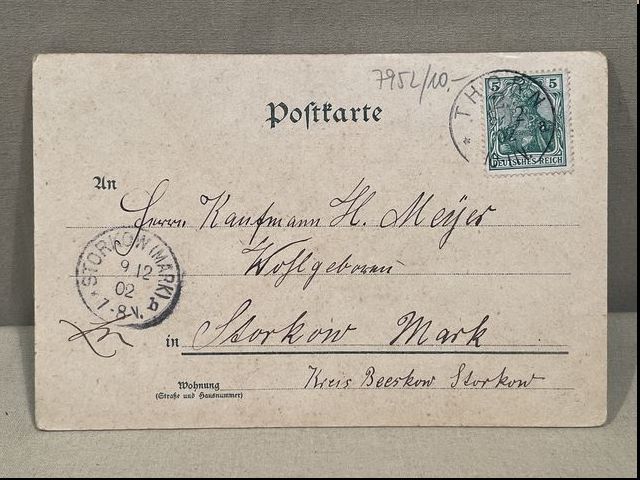 7952/10,-
THORN
5 5
DEUTSCHES REICH
Postkarte
An
Herrn Kaufmann H. Meyer
Wohlgeboren
STORKOW (MARK) a
9 12
02
7-8 V.
in Storkow Mark
Wohnung
(Straße und Hausnummer)
Kreis Beeskow Storkow